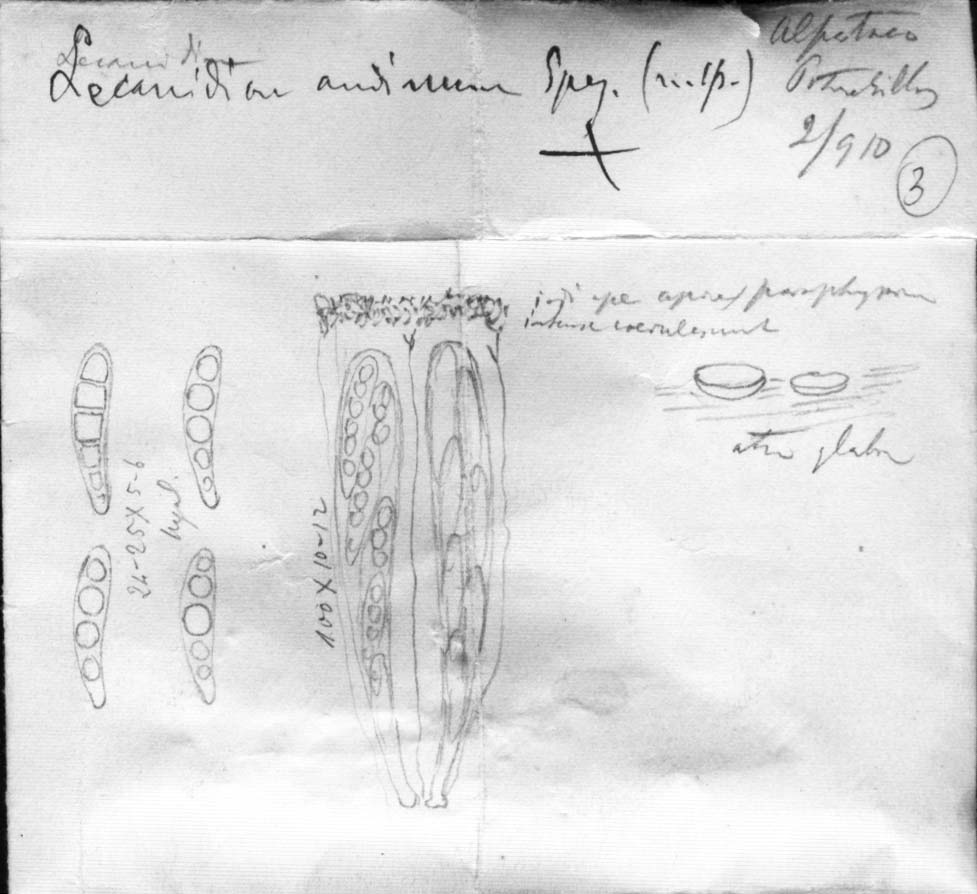 Lecanidion
Lecanidion andinum Speg. (n.sp.)
Alpataco
Potrerillos
2/910
3
iodi ope apices paraphysium
intense coerulescunt
atra glabra
24-25X5-6
hyal.
100X10-12